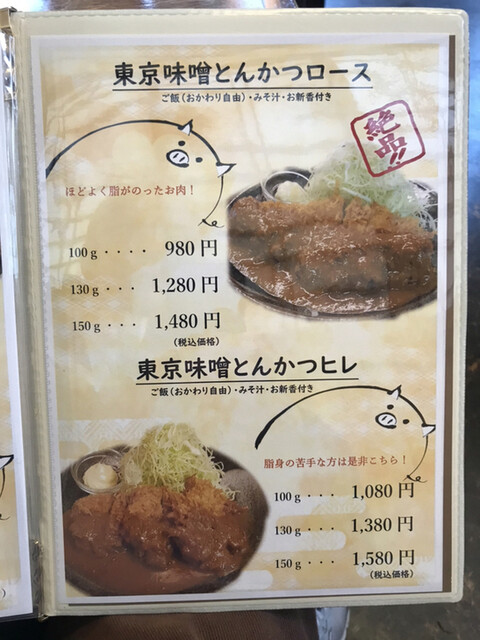 東京味噌とんかつロース
ご飯(おかわり自由)・みそ汁・お新香付き
絶品!!
ほどよく脂がのったお肉！
100g・・・・ 980円
130g・・・ 1,280円
150g・・・ 1,480円
(税込価格)
東京味噌とんかつヒレ
ご飯(おかわり自由)・みそ汁・お新香付き
脂身の苦手な方は是非こちら！
100g・・・ 1,080円
130g・・・ 1,380円
150g・・・ 1,580円
(税込価格)